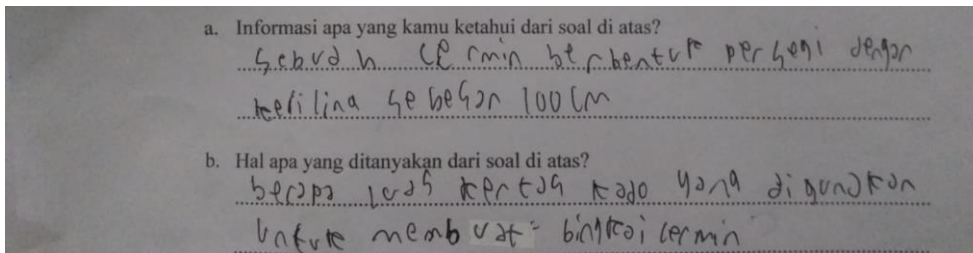 a. Informasi apa yang kamu ketahui dari soal di atas?
Sebuah cermin berbentuk persegi dengan
keliling sebesar 100 cm
b. Hal apa yang ditanyakan dari soal di atas?
berapa luas kertas kado yang digunakan
untuk membuat bingkai cermin